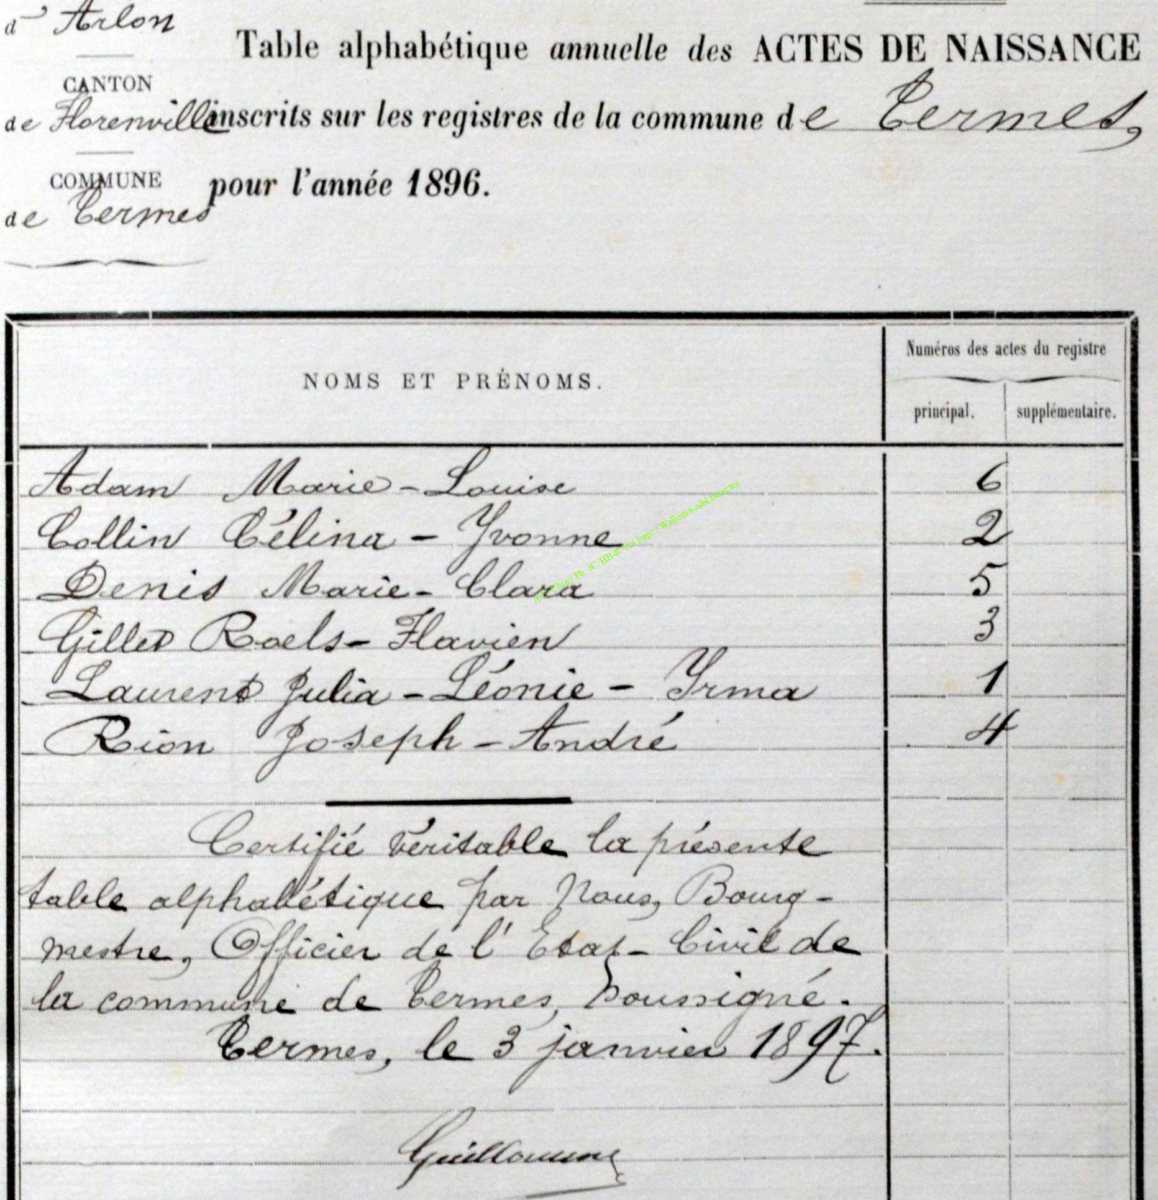 d' Arlon
CANTON
de Florenville
COMMUNE
de Termes
Table alphabétique annuelle des ACTES DE NAISSANCE
inscrits sur les registres de la commune de Termes,
pour l'année 1896.
NOMS ET PRÉNOMS.
Numéros des actes du registre
principal. supplémentaire.
Adam Marie-Louise 6
Collin Célina-Yvonne 2
Denis Marie-Clara 5
Gillet Roels-Flavien 3
Laurent Julia-Léonie-Yrma 1
Rion Joseph-André 4
Certifié véritable la présente
table alphabétique par Nous, Bourg-
mestre, Officier de l'Etat-Civil de
la commune de Termes, soussigné.
Termes, le 3 janvier 1897.
Guillaume